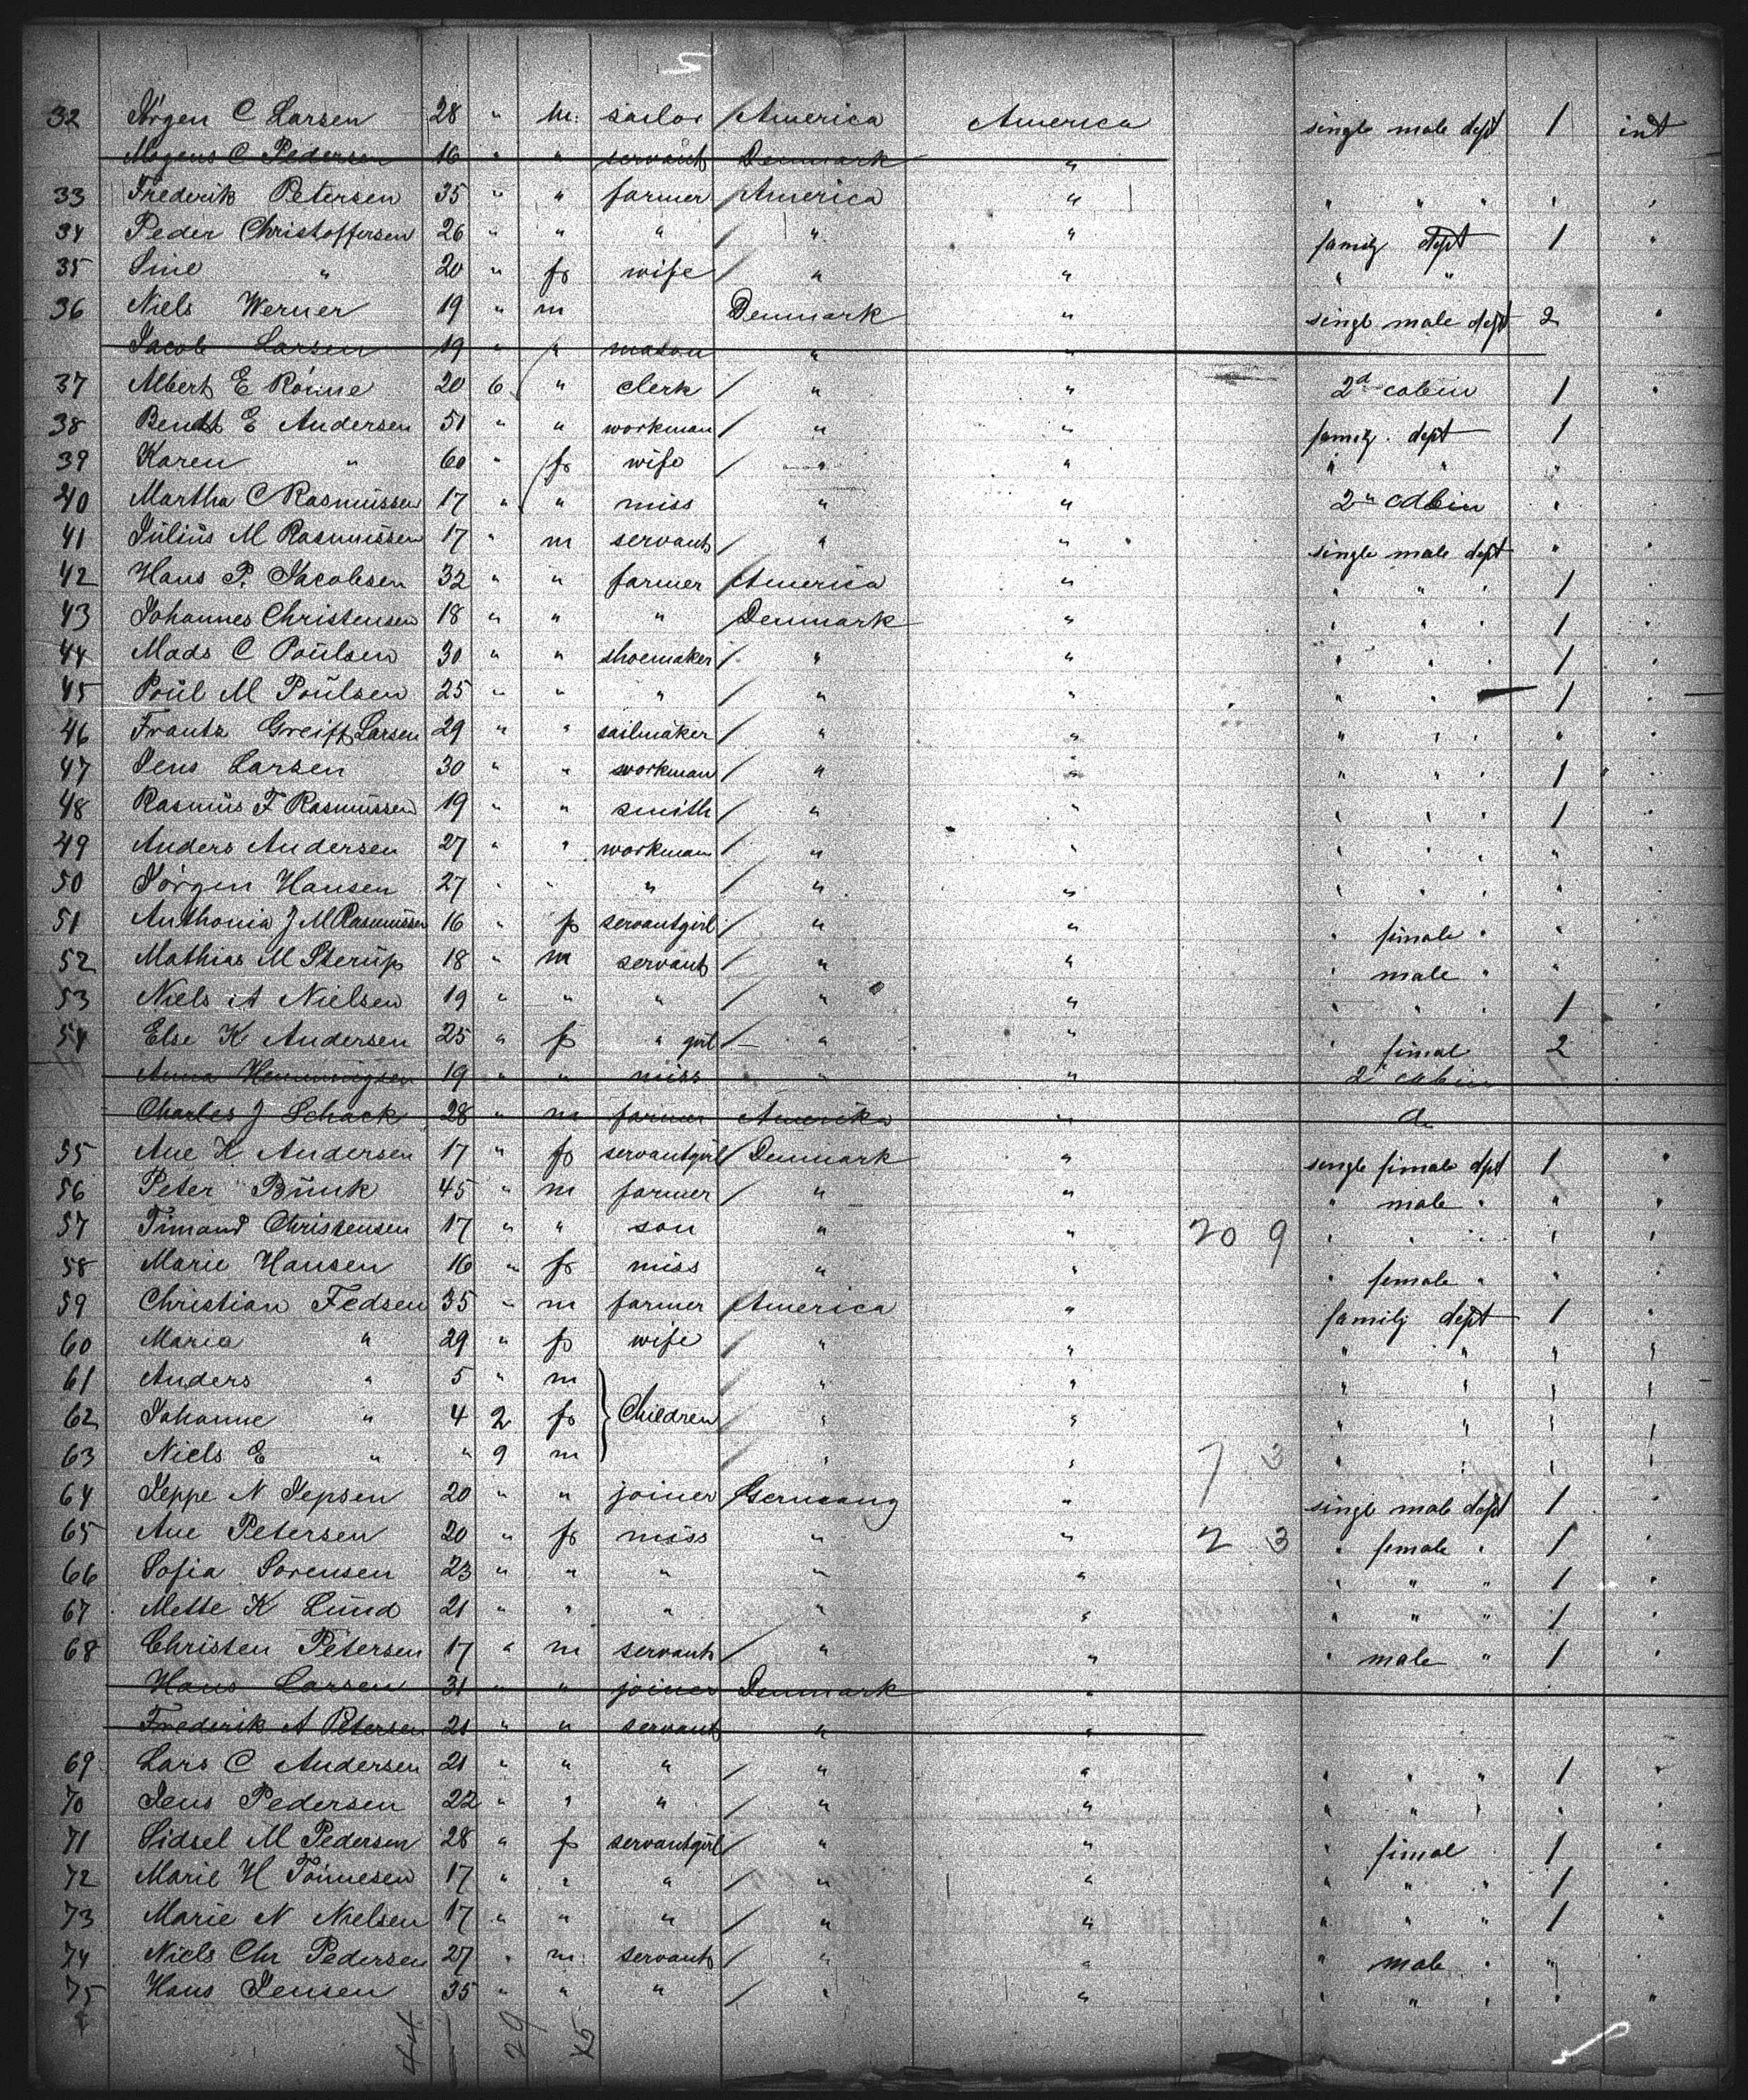 5
32 Jörgen C Larsen 28 " m. sailor / America America single male dept 1 int
Mogens C Pedersen 16 " " servant Denmark "
33 Frederik Petersen 35 " " farmer / America " " " " " "
34 Peder Christoffersen 26 " " " / " " family dept 1 "
35 Sine " 20 " f wife / " " " "
36 Niels Werner 19 " m Denmark " single male dept 2 "
Jacob Larsen 19 " " mason " "
37 Albert E Rönne 20 6 " clerk / " " 2d cabin 1 "
38 Bendt E Andersen 51 " " workman / " " family dept 1
39 Karen " 60 " f wife / " " " " "
40 Martha C Rasmüssen 17 " " miss " " 2" cabin "
41 Jüliüs M Rasmüssen 17 " m servant / " " single male dept " "
42 Hans P. Jacobsen 32 " " farmer / America " " " " 1 "
43 Johannes Christensen 18 " " " / Denmark " " " " 1 "
44 Mads C Poülsen 30 " " shoemaker / " " " " " 1 "
45 Poül M Poülsen 25 " " " / " " " " 1 "
46 Frantz Greift Larsen 29 " " sailmaker / " " " " " " "
47 Jens Larsen 30 " " workman / " " " " " 1 "
48 Rasmüs F Rasmüssen 19 " " smith / " " " " " 1 "
49 Anders Andersen 27 " " workman / " " " " " " "
50 Jörgen Hansen 27 " " " / " " " " " " "
51 Anthonia J M Rasmüssen 16 " f servantgirl / " " " fimale " "
52 Mathias M Sterüp 18 " m servant / " " " male " " "
53 Niels A Nielsen 19 " " " / " " " " " 1 "
54 Else K Andersen 25 " f " girl / " " " fimal 2 "
Anna Henningsen 19 " " miss " " 2" cabin
Charles J Schack 28 " m farmer Amerika "
55 Ane K Andersen 17 " f servantgirl / Denmark " single fimale dpt 1 "
56 Peter Bünk 45 " m farmer / " " " male " " "
57 Timand Christensen 17 " " son " " 20 9 " " " " "
58 Marie Hansen 16 " f miss " " " female " " "
59 Christian Fedsen 35 " m farmer / America " family dept 1 "
60 Maria " 29 " f wife / " " " " " "
61 Anders " 5 " m / " " " " " "
62 Johanne " 4 2 f } Children / " " " " " "
63 Niels E " " 9 m / " " 7 3 " " " "
64 Jeppe N Jepsen 20 " " joiner / Germany " single male dept 1 "
65 Ane Petersen 20 " f miss " " 2 3 " female " 1 "
66 Sofia Sorensen 23 " " " " " " " " 1 "
67 Mette K Lünd 21 " " " " " " " " 1 "
68 Christen Petersen 17 " m servant / " " " male " 1 "
Hans Larsen 31 " " joiner Denmark "
Frederik A Petersen 21 " " servant " "
69 Lars C Andersen 21 " " " / " " " " " 1 "
70 Jens Pedersen 22 " " " / " " " " " " "
71 Sidsel M Pedersen 28 " f servantgirl / " " " fimal 1 "
72 Marie H Tönnesen 17 " " " / " " " " " 1 "
73 Marie N Nielsen 17 " " " / " " " " " 1 "
74 Niels Chr Pedersen 27 " m servant / " " " male " " "
75 Hans Jensen 35 " " " / " " " " " " "
44 29